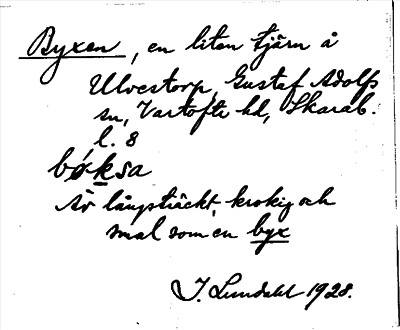 Byxen, en liten tjärn å
Ulvestorp, Gustaf Adolfs
sn, Vartofta hd, Skarab.
l. 8
bǿksa
Är långsträckt, krokig och
smal som en byx
J. Lundahl 1928.